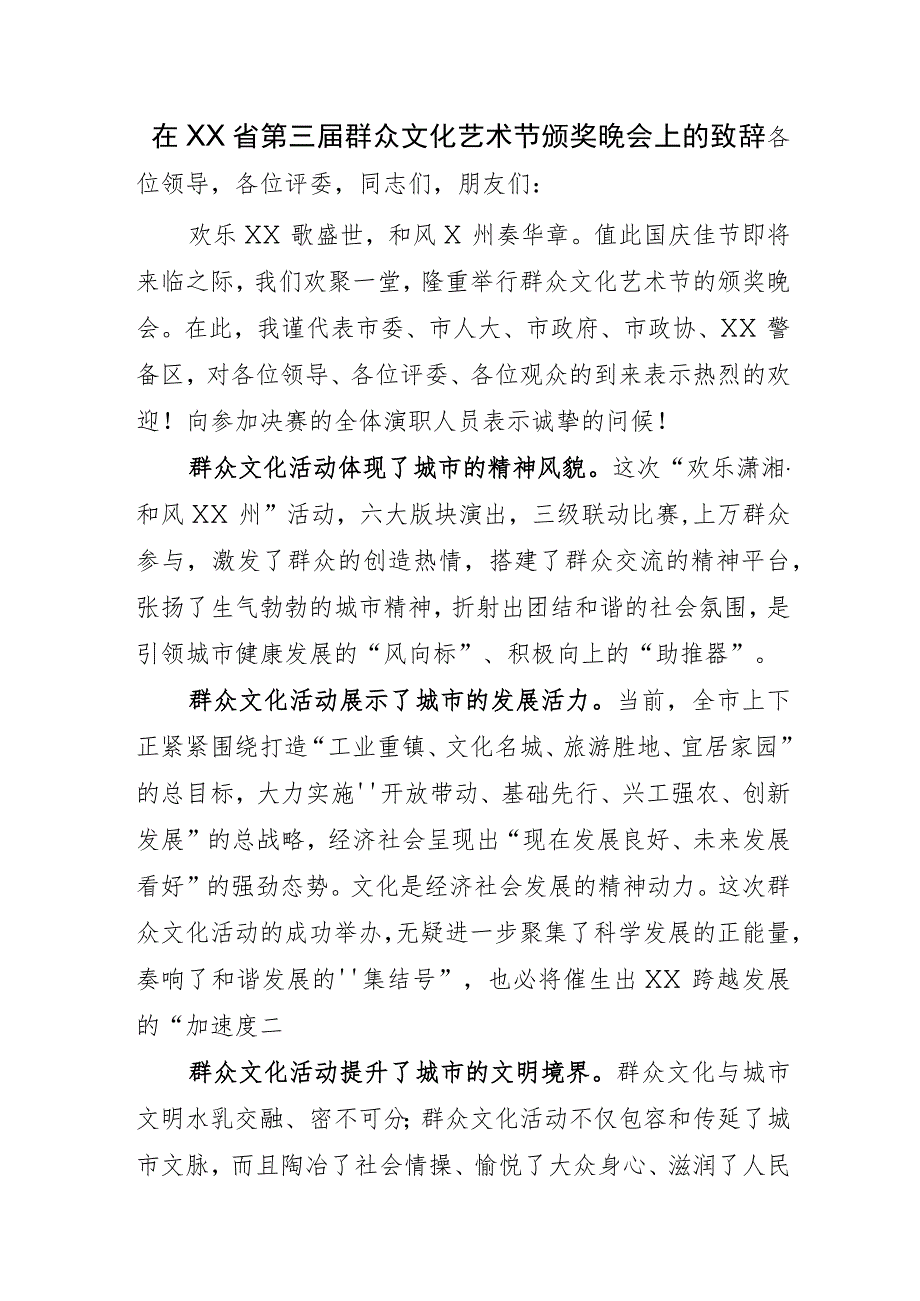 在XX省第三届群众文化艺术节颁奖晚会上的致辞各
位领导，各位评委，同志们，朋友们：
欢乐XX 歌盛世，和风X 州奏华章。值此国庆佳节即将
来临之际，我们欢聚一堂，隆重举行群众文化艺术节的颁奖晚
会。在此，我谨代表市委、市人大、市政府、市政协、XX 警
备区，对各位领导、各位评委、各位观众的到来表示热烈的欢
迎！向参加决赛的全体演职人员表示诚挚的问候！
群众文化活动体现了城市的精神风貌。这次“欢乐潇湘·
和风XX 州”活动，六大版块演出，三级联动比赛,上万群众
参与，激发了群众的创造热情，搭建了群众交流的精神平台，
张扬了生气勃勃的城市精神，折射出团结和谐的社会氛围，是
引领城市健康发展的“风向标”、积极向上的“助推器”。
群众文化活动展示了城市的发展活力。当前，全市上下
正紧紧围绕打造“工业重镇、文化名城、旅游胜地、宜居家园”
的总目标，大力实施''开放带动、基础先行、兴工强农、创新
发展”的总战略，经济社会呈现出“现在发展良好、未来发展
看好”的强劲态势。文化是经济社会发展的精神动力。这次群
众文化活动的成功举办,无疑进一步聚集了科学发展的正能量，
奏响了和谐发展的''集结号”，也必将催生出XX 跨越发展
的“加速度二
群众文化活动提升了城市的文明境界。群众文化与城市
文明水乳交融、密不可分;群众文化活动不仅包容和传延了城
市文脉，而且陶冶了社会情操、愉悦了大众身心、滋润了人民